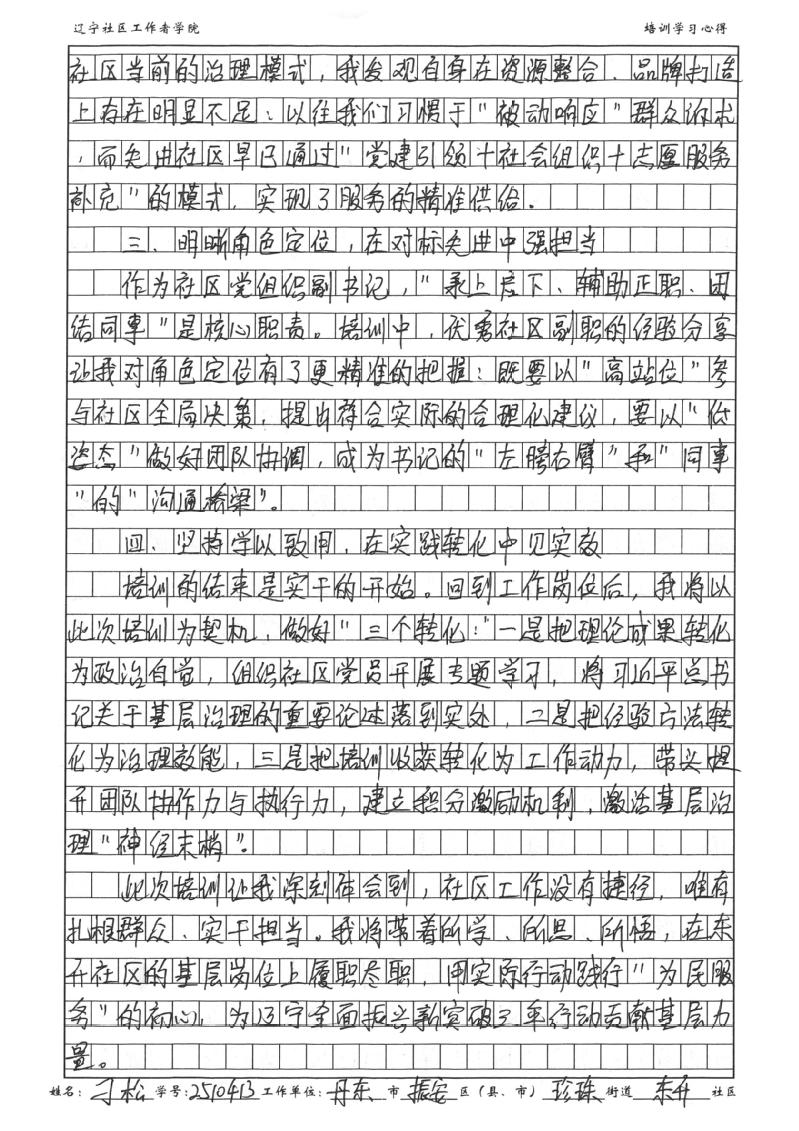 辽宁社区工作者学院 培训学习心得
社区当前的治理模式，我发现自身在资源整合、品牌打造
上存在明显不足：以往我们习惯于"被动响应"群众诉求
，而先进社区早已通过"党建引领+社会组织+志愿服务
补充"的模式，实现了服务的精准供给。
三、明晰角色定位，在对标先进中强担当
作为社区党组织副书记，"承上启下、辅助正职、团
结同事"是核心职责。培训中，优秀社区副职的经验分享
让我对角色定位有了更精准的把握：既要以"高站位"参
与社区全局决策，提出符合实际的合理化建议，要以"低
姿态"做好团队协调，成为书记的"左膀右臂"和"同事
"的"沟通桥梁"。
四、坚持学以致用，在实践转化中见实效
培训的结束是实干的开始。回到工作岗位后，我将以
此次培训为契机，做好"三个转化："一是把理论成果转化
为政治自觉，组织社区党员开展专题学习，将习近平总书
记关于基层治理的重要论述落到实处，二是把经验方法转
化为治理效能，三是把培训收获转化为工作动力，带头提
升团队协作力与执行力，建立积分激励机制，激活基层治
理"神经末梢"。
此次培训让我深刻体会到，社区工作没有捷径，唯有
扎根群众、实干担当。我将带着所学、所思、所悟，在东
升社区的基层岗位上履职尽职，用实际行动践行"为民服
务"的初心，为辽宁全面振兴新突破三年行动贡献基层力
量。
姓名：刁松 学号：2510413 工作单位：丹东 市 振安 区（县、市） 珍珠 街道 东升 社区